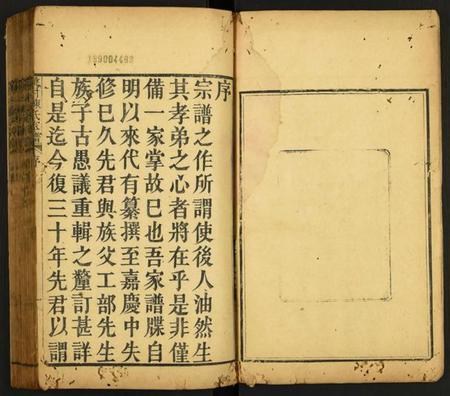 序
宗譜之作所謂使後人油然生
其孝弟之心者將在乎是非僅
備一家掌故已也吾家譜牒自
明以來代有纂撰至嘉慶中失
修已久先君與族父工部先生
族子古愚議重輯之釐訂甚詳
自是迄今復三十年先君以謂